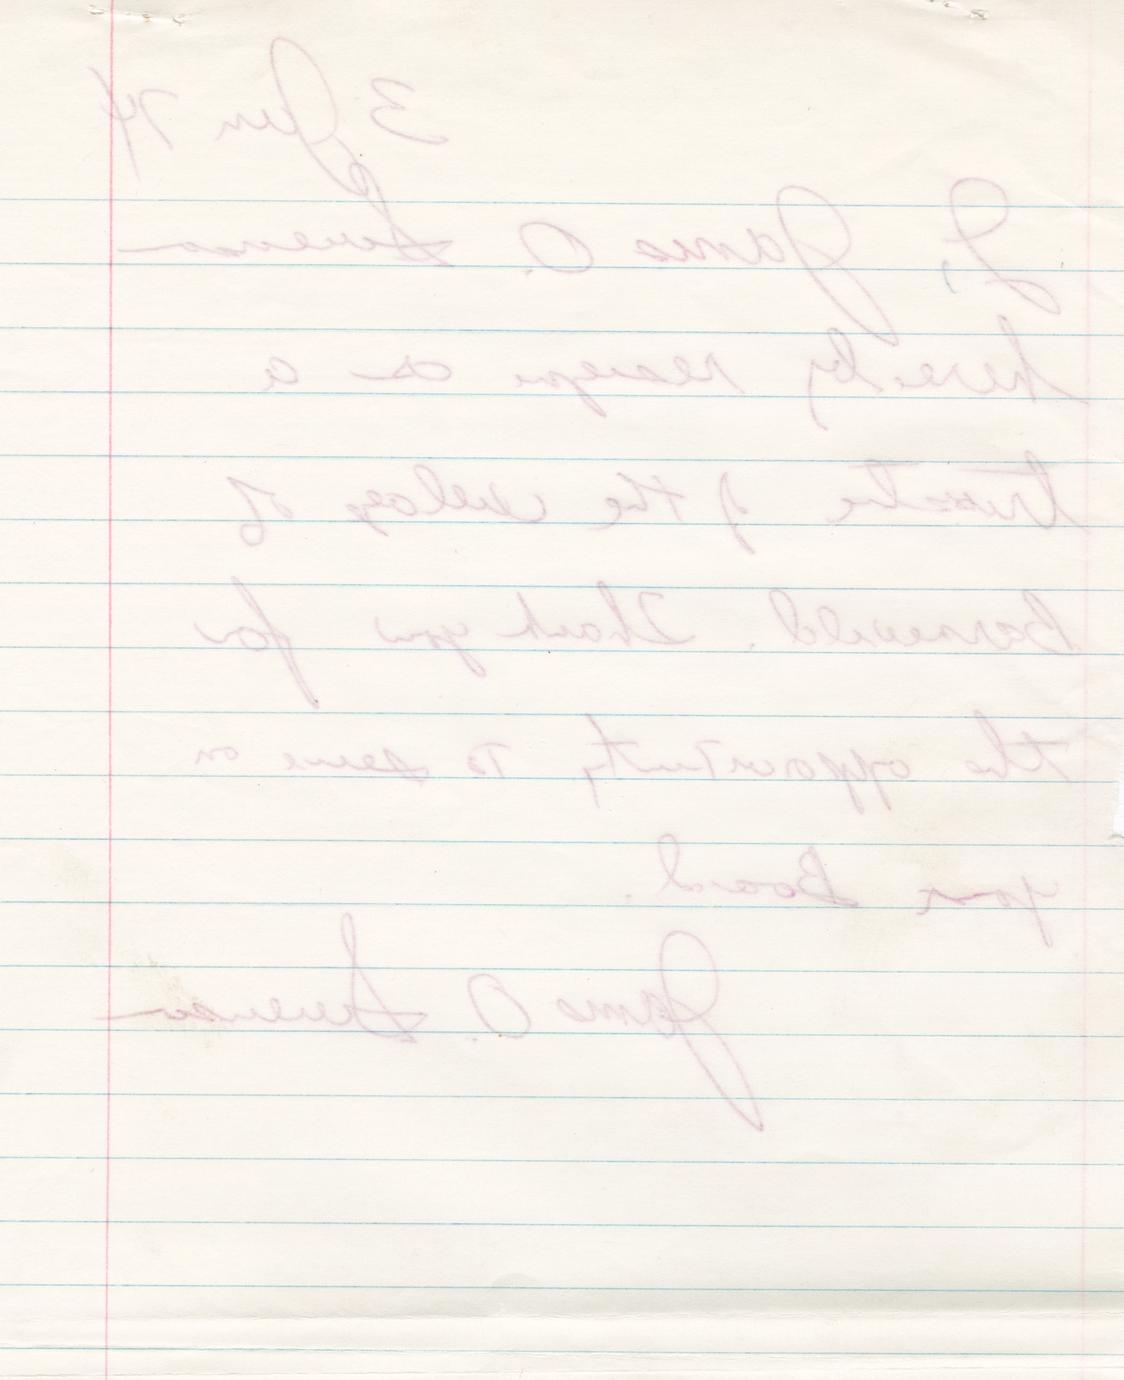 3 Jun 74
I, James O.
hereby resign as a
trustee of the village of
Barneveld. Thank you for
the opportunity to serve on
your Board.
James O.